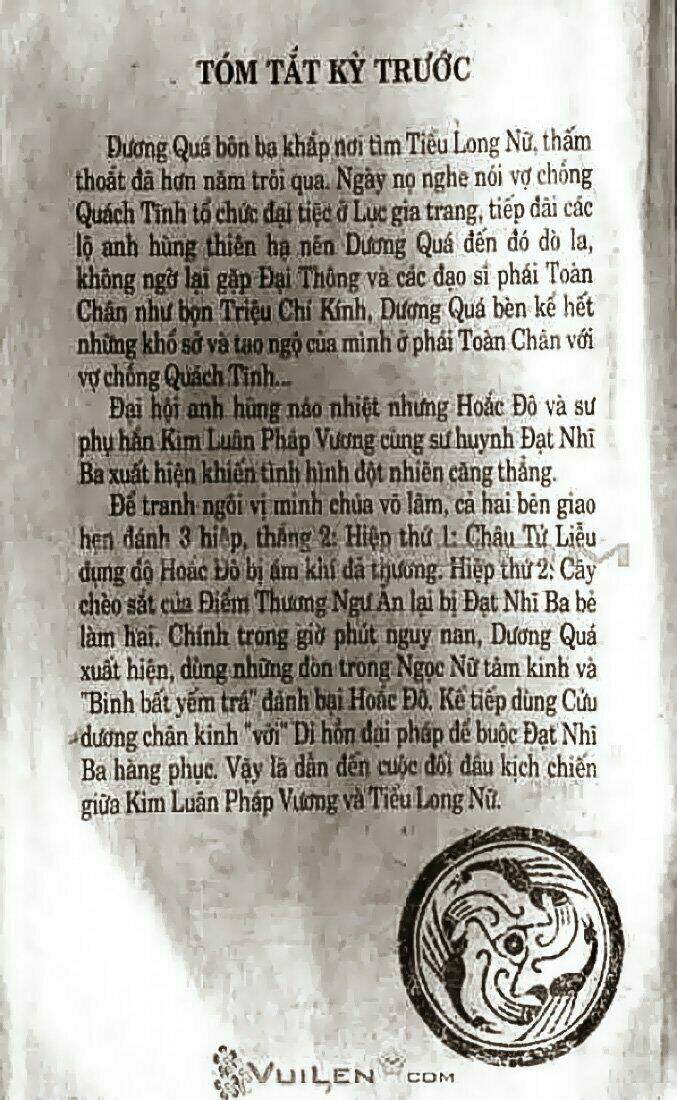 TÓM TẮT KỲ TRƯỚC
Dương Quá bôn ba khắp nơi tìm Tiểu Long Nữ, thấm
thoắt đã hơn năm trôi qua. Ngày nọ nghe nói vợ chồng
Quách Tĩnh tổ chức đại tiệc ở Lục gia trang, tiếp đãi các
lộ anh hùng thiên hạ nên Dương Quá đến đó dò la,
không ngờ lại gặp Đại Thông và các đạo sĩ phái Toàn
Chân như bọn Triệu Chí Kính, Dương Quá bèn kể hết
những khổ sở và tao ngộ của mình ở phái Toàn Chân với
vợ chồng Quách Tĩnh...
Đại hội anh hùng náo nhiệt nhưng Hoắc Đô và sư
phụ hắn Kim Luân Pháp Vương cùng sư huynh Đạt Nhĩ
Ba xuất hiện khiến tình hình đột nhiên căng thẳng.
Để tranh ngôi vị minh chủ võ lâm, cả hai bên giao
hẹn đánh 3 hiệp, thắng 2: Hiệp thứ 1: Châu Tử Liễu
đụng độ Hoắc Đô bị ám khí đả thương. Hiệp thứ 2: Cây
chèo sắt của Điểm Thương Ngư Ẩn lại bị Đạt Nhĩ Ba bẻ
làm hai. Chính trong giờ phút nguy nan, Dương Quá
xuất hiện, dùng những đòn trong Ngọc Nữ tâm kinh và
"Binh bất yếm trá" đánh bại Hoắc Đô. Kế tiếp dùng Cửu
dương chân kinh "với" Di hồn đại pháp để buộc Đạt Nhĩ
Ba hàng phục. Vậy là dẫn đến cuộc đối đầu kịch chiến
giữa Kim Luân Pháp Vương và Tiểu Long Nữ.
VUILEN COM